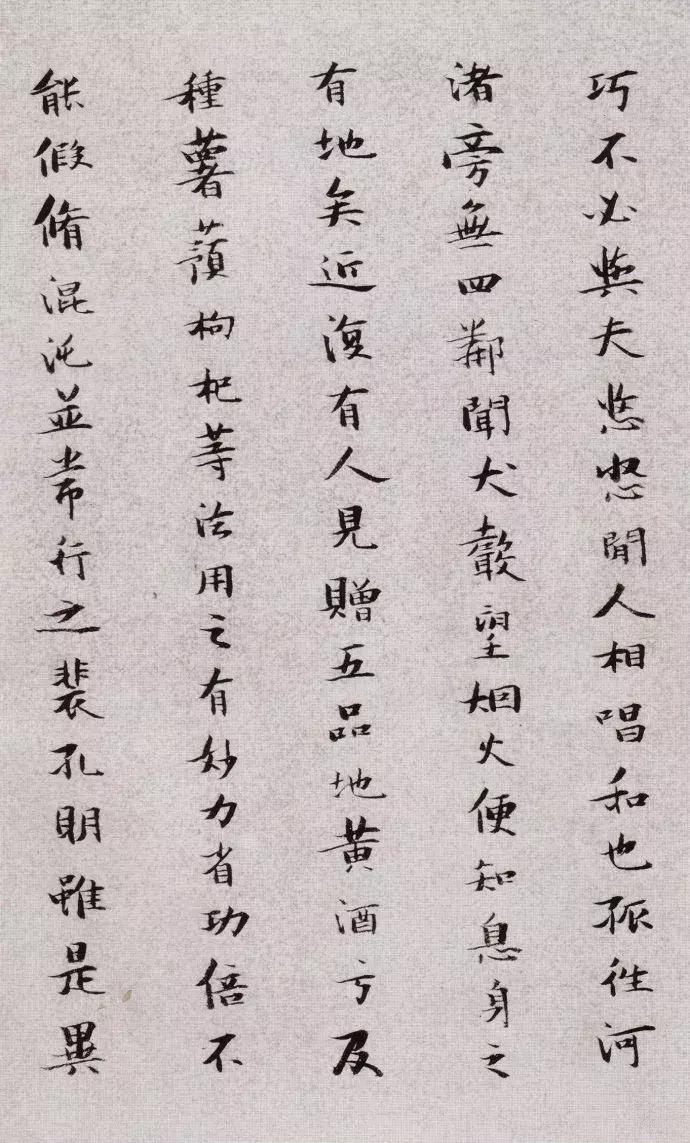 巧不必與夫悠悠閒人相唱和也孤徃河
渚旁無四鄰聞犬聲望烟火便知息身之
有地矣近復有人見贈五品地黃酒方及
種薯蕷枸杞等法用之有妙力省功倍不
能假脩混沌並常行之裴孔明雖是異